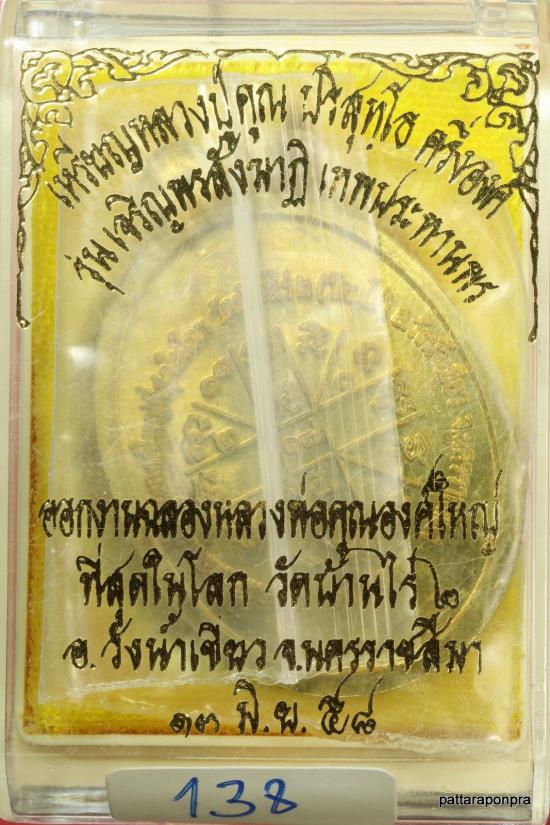 เหรียญหลวงปู่คูณ ปริสุทฺโธ ครึ่งองค์
รุ่น เจริญพรสั่งฟ้าฏิ เทพประทานพร
ออกงานฉลองหลวงพ่อคูณองค์ใหญ่
ที่สุดในโลก วัดบ้านไร่ ๒
อ. วังน้ำเขียว จ.นครราชสีมา
๑๓ พ.ย. ๕๘
138
pattaraponpra